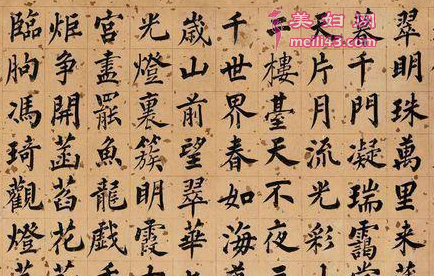 翠明珠萬里来
千門凝瑞靄
天片月流光彩
二樓臺天不夜三
千世界春如海
歳山前望翠華
光燈裏簇明霞
宮盡罷魚龍戲
炬争開菡萏花
臨朐馮琦觀燈
美妇网
meili43.com